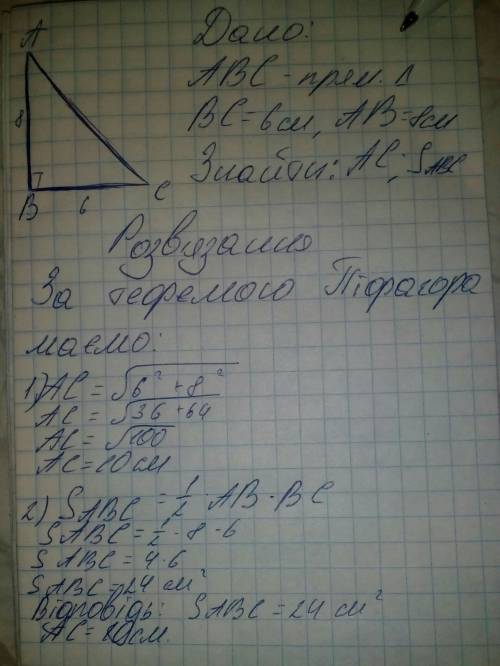 A
Дано:
8
ABC - прям. Δ
BC=6см, AB=8см
Знайти: AC; SABC
B
6
C
Розвязання
За теоремою Піфагора
маємо:
1) AC = √6² + 8²
AC = √36 + 64
AC = √100
AC = 10 см
2) SABC = 1/2 · AB · BC
SABC = 1/2 · 8 · 6
SABC = 4 · 6
SABC = 24 см²
Відповідь: SABC = 24 см²
AC = 10см.